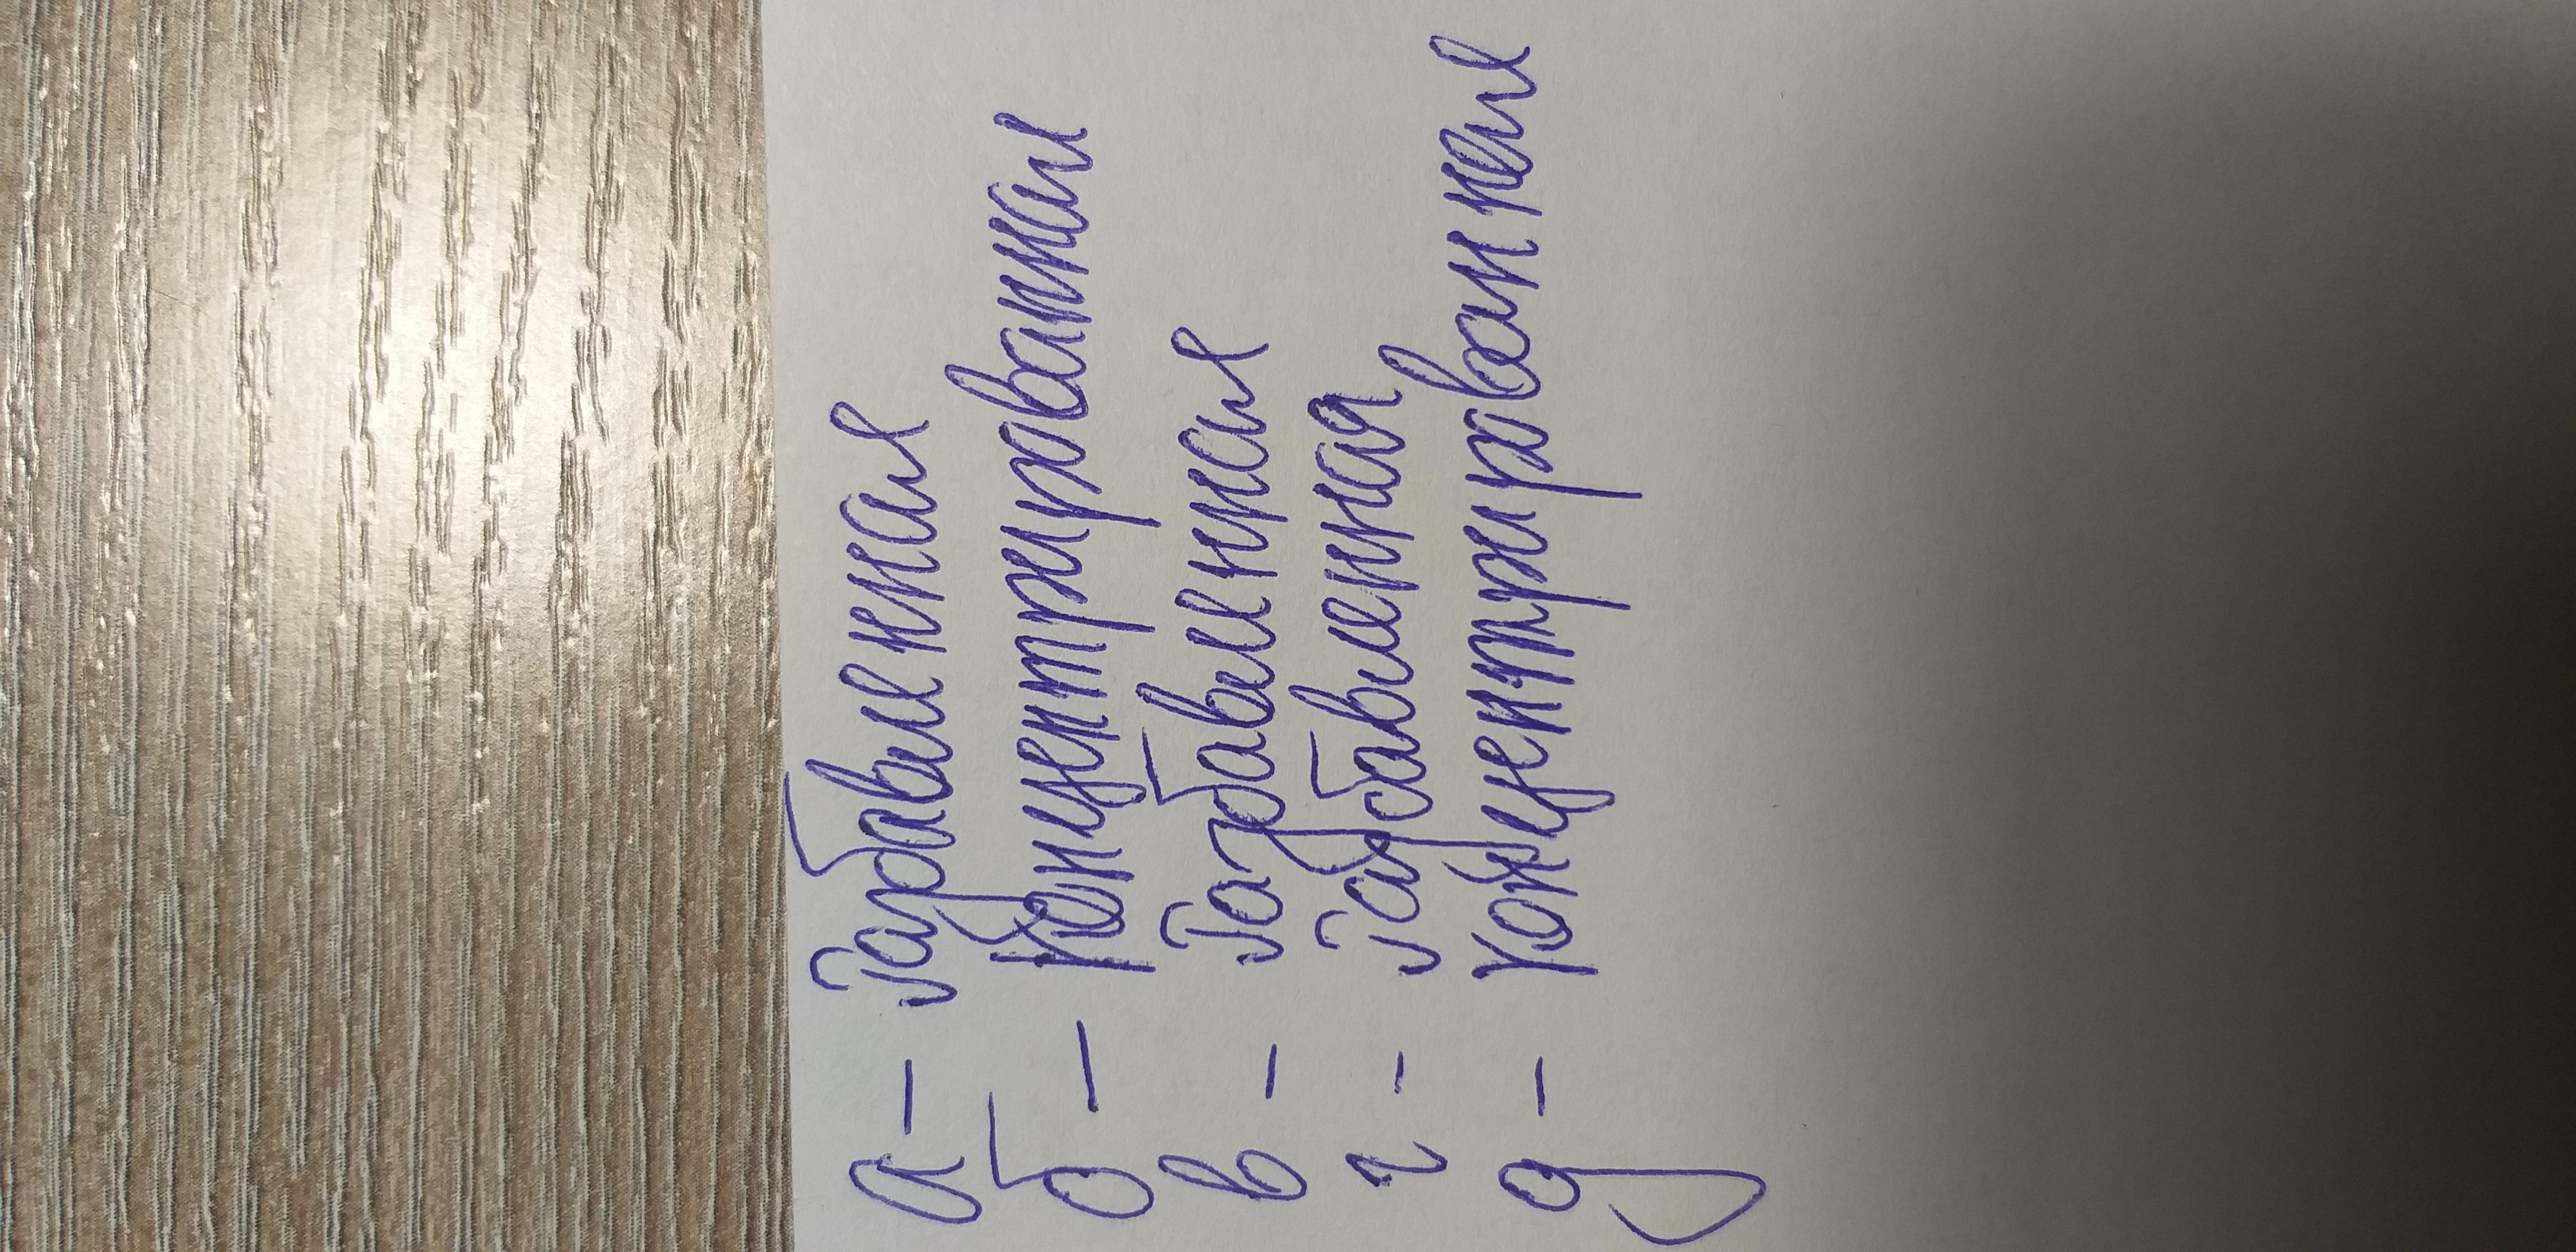 а- Разбавленная
б- Концентрированная
в- Разбавленная
г- Разбавленная
д- Концентрированная